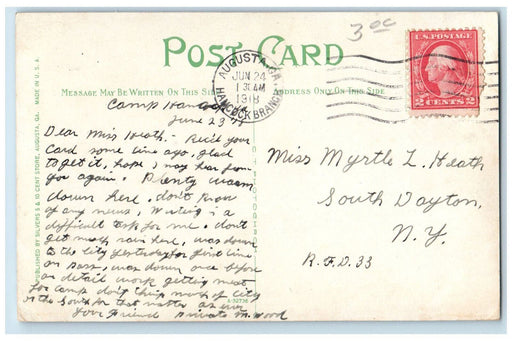 3.00
POST CARD
AUGUSTA, GA.
JUN 24
1 30 AM
1918
HANCOCK BRANCH
U.S. POSTAGE
2 CENTS 2
MESSAGE MAY BE WRITTEN ON THIS SIDE
ADDRESS ONLY ON THIS SIDE
MADE IN U.S.A.
PUBLISHED BY SILVER'S 5 & 10 CENT STORE, AUGUSTA, GA.
Camp Hancock
June 23
Dear Miss Heath:- Rec'd your
card some time ago, glad
to get it, hope I may hear from
you again. Plenty warm
down here. don't know
of any news, Writing is a
difficult task for me. don't
get much rain here, was down
to the city yesterday for first time
on pass, was down once before
on detail work getting meat
for camp don't think much of city
or the South for that matter as ever
Your Friend Private M. Wood
Miss Myrtle L. Heath
South Dayton,
N.Y.
R.F.D. 33